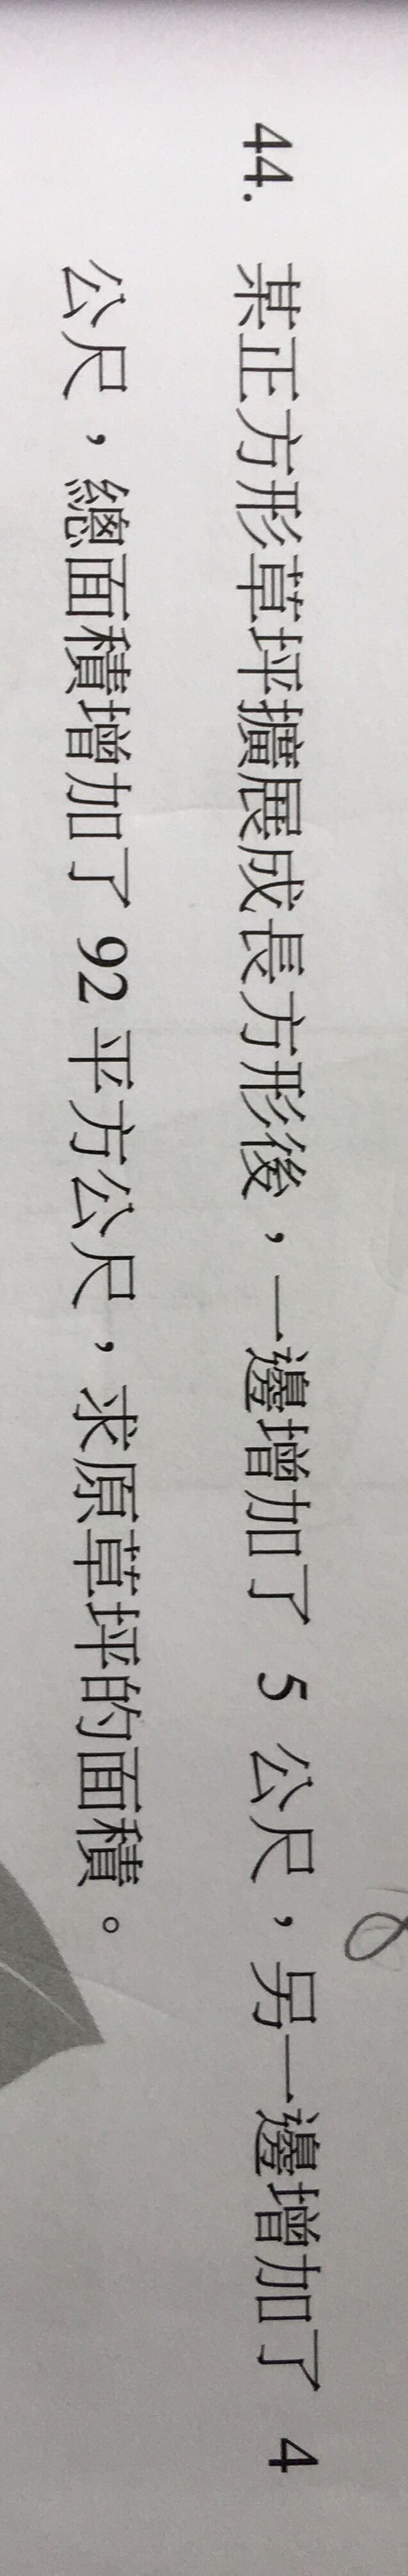 44. 某正方形草坪擴展成長方形後，一邊增加了 5 公尺，另一邊增加了 4
公尺，總面積增加了 92 平方公尺，求原草坪的面積。